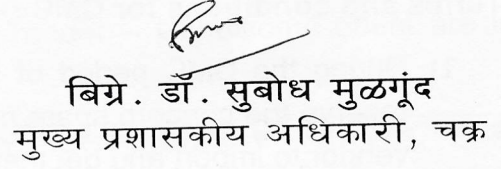 बिग्रे. डॉ. सुबोध मुळगूंद
मुख्य प्रशासकीय अधिकारी, चक्र